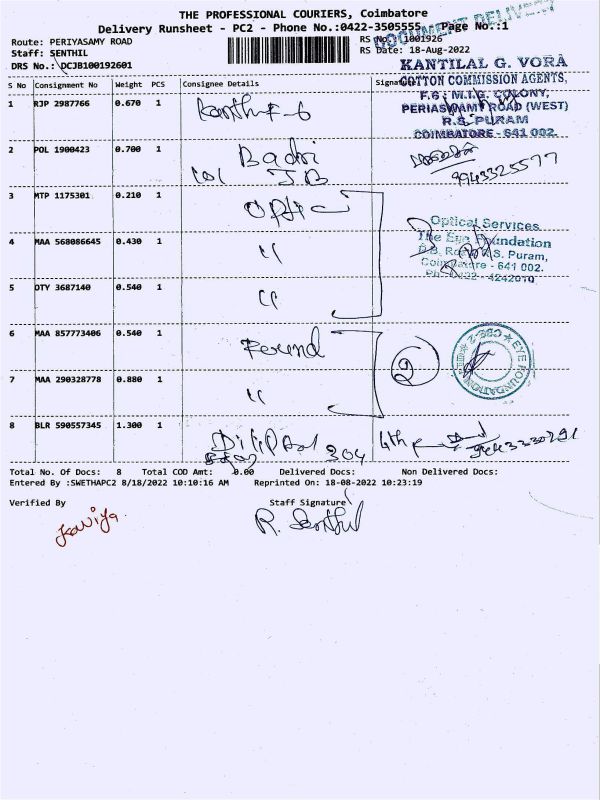 THE PROFESSIONAL COURIERS, Coimbatore
DOCUMENT DELIVERY
Delivery Runsheet - PC2 - Phone No.:0422-3505555 Page No.:1
Route: PERIYASAMY ROAD
RS No.: 1001926
Staff: SENTHIL
RS Date: 18-Aug-2022
DRS No.: DCJB100192601
KANTILAL G. VORA
COTTON COMMISSION AGENTS,
F.6, M.I.G. COLONY,
PERIASWAMY ROAD (WEST)
R.S. PURAM
COIMBATORE - 641 002.
S No Consignment No Weight PCS Consignee Details Signature
1 RJP 2987766 0.670 1 F-6
2 POL 1900423 0.700 1 Badri
9943325577
3 MTP 1175301 0.210 1 Optic
Optical Services
The Eye Foundation
D.B. Road, R.S. Puram,
Coimbatore - 641 002.
4242010
4 MAA 568086645 0.430 1 "
5 OTY 3687140 0.540 1 "
6 MAA 857773406 0.540 1 Found
2
EYE FOUNDATION
CBE-2
7 MAA 290328778 0.880 1 "
8 BLR 590557345 1.300 1 204
Total No. Of Docs: 8 Total COD Amt: 0.00 Delivered Docs: Non Delivered Docs:
Entered By :SWETHAPC2 8/18/2022 10:10:16 AM Reprinted On: 18-08-2022 10:23:19
Verified By Staff Signature
Kaviya
R. Senthil